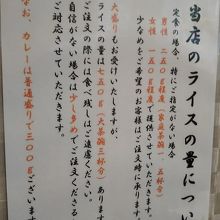 当店のライスの量につい
定食の場合、特にご指定がない場合
男性 二五〇g程度(家庭茶碗一、五杯分)
女性 一五〇g程度で提供させていただきます。
少なめをご希望のお客様は、ご注文時に承ります。
大盛りもお受けいたしますが、
ライスの量は七五〇g(大茶碗三杯分)あります
ご注文の際には食べ残しはご遠慮ください。
自信がない場合は少し多めでご注文くださる
ご対応させていただきます。
なお、カレーは普通盛りで三〇〇gございま